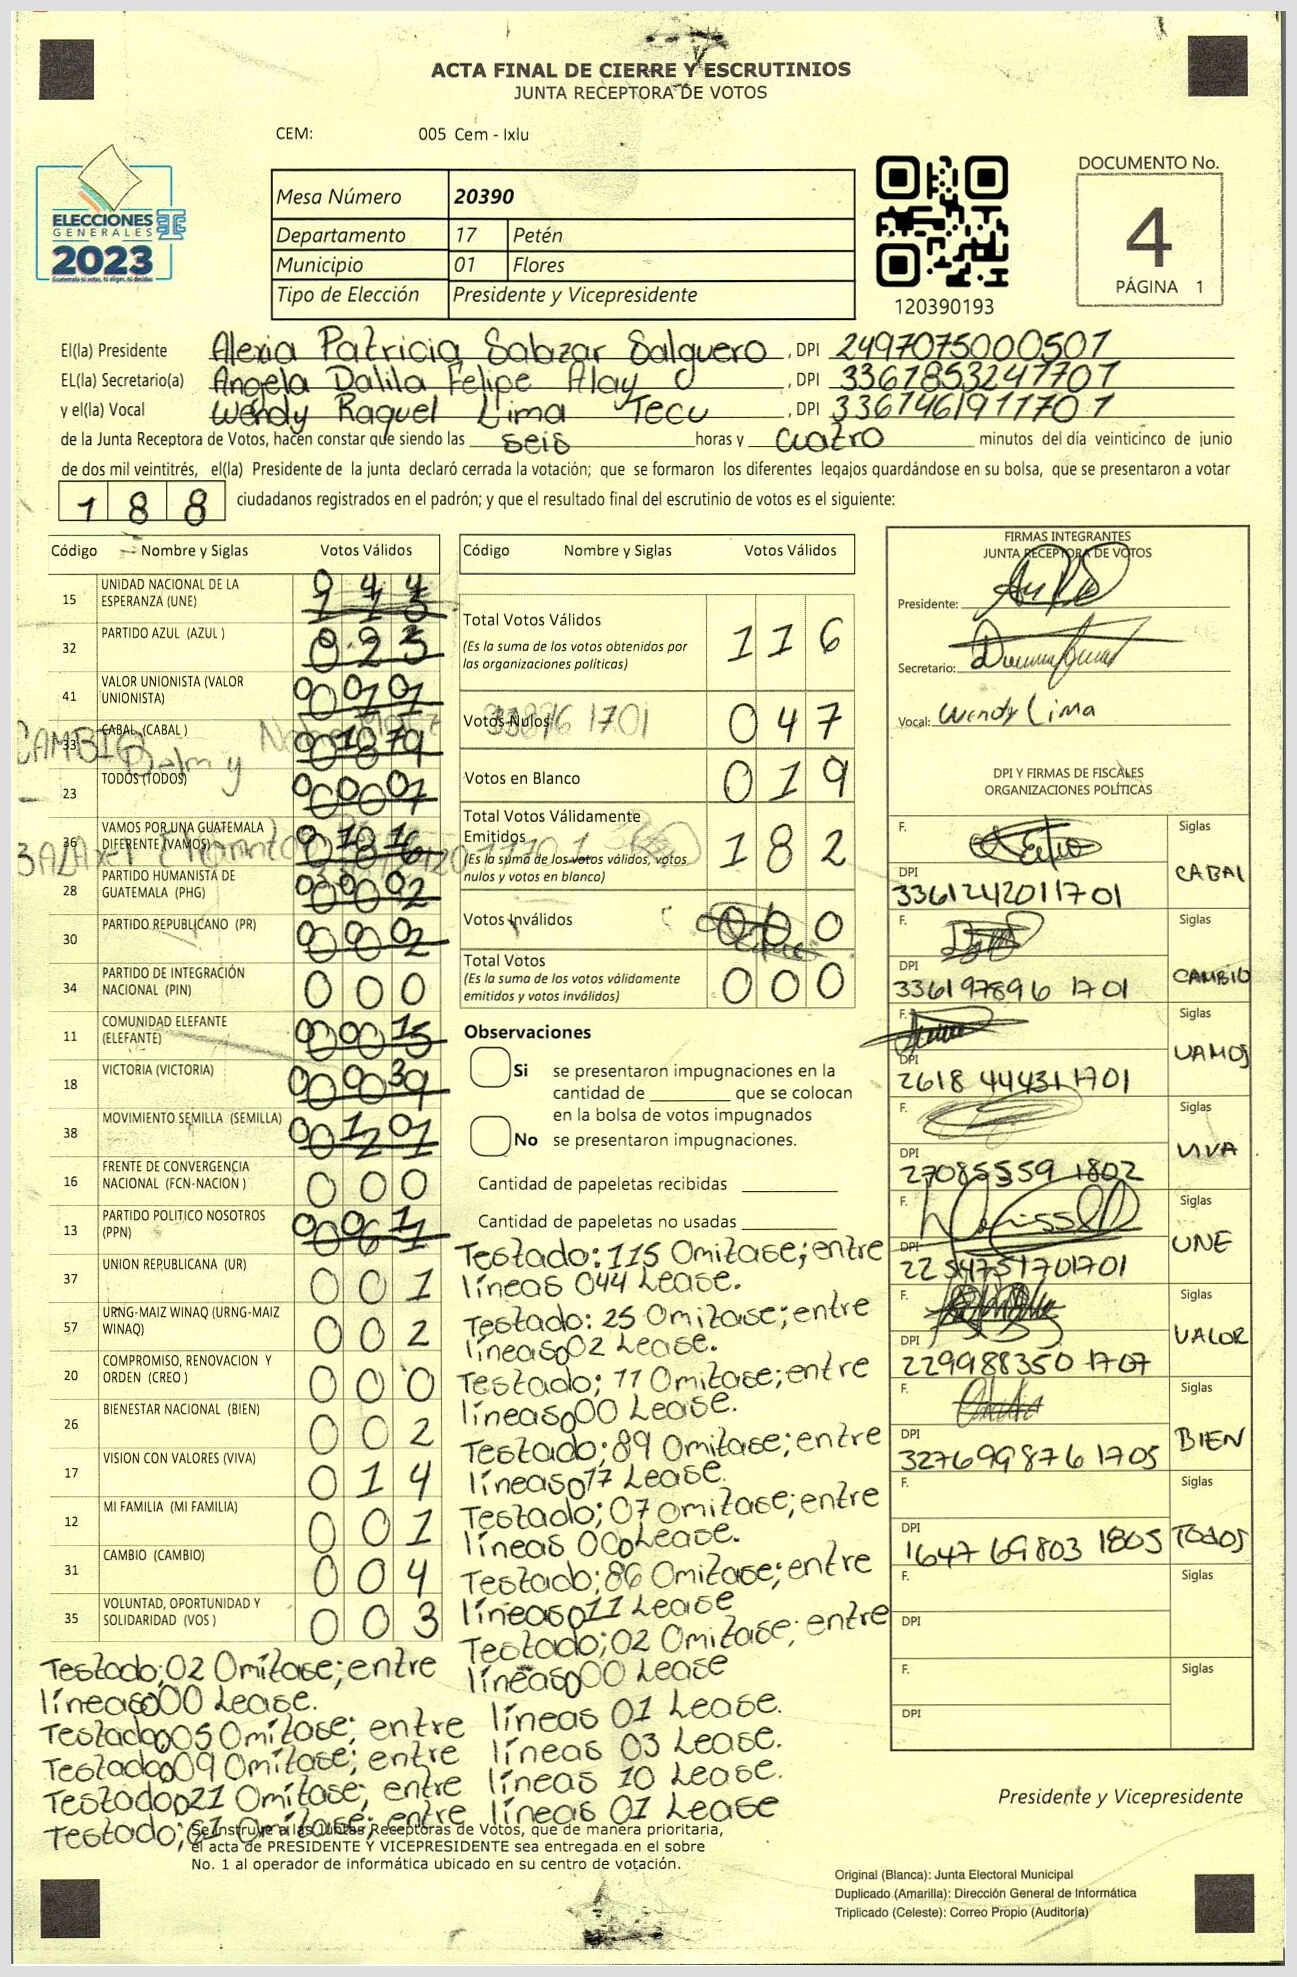 ACTA FINAL DE CIERRE Y ESCRUTINIOS
JUNTA RECEPTORA DE VOTOS
CEM: 005 Cem - Ixlu
DOCUMENTO No.
4
PÁGINA 1
ELECCIONES
GENERALES
2023
Mesa Número 20390
Departamento 17 Petén
Municipio 01 Flores
Tipo de Elección Presidente y Vicepresidente
120390193
El(la) Presidente Alexia Patricia Salazar Salguero, DPI 2497075000501
EL(la) Secretario(a) Angela Dalila Felipe Alay, DPI 3361853241701
y el(la) Vocal Wendy Raquel Lima Tecu, DPI 3361461911701
de la Junta Receptora de Votos, hacen constar que siendo las seis horas y cuatro minutos del día veinticinco de junio
de dos mil veintitrés, el(la) Presidente de la junta declaró cerrada la votación; que se formaron los diferentes legajos quardándose en su bolsa, que se presentaron a votar
188 ciudadanos registrados en el padrón; y que el resultado final del escrutinio de votos es el siguiente:
Código Nombre y Siglas Votos Válidos
15 UNIDAD NACIONAL DE LA
ESPERANZA (UNE)
32 PARTIDO AZUL (AZUL )
41 VALOR UNIONISTA (VALOR
UNIONISTA)
33 CABAL (CABAL )
CAMBIO
23 TODOS (TODOS)
36 VAMOS POR UNA GUATEMALA
DIFERENTE (VAMOS)
28 PARTIDO HUMANISTA DE
GUATEMALA (PHG)
30 PARTIDO REPUBLICANO (PR)
34 PARTIDO DE INTEGRACIÓN
NACIONAL (PIN) 0 0 0
11 COMUNIDAD ELEFANTE
(ELEFANTE)
18 VICTORIA (VICTORIA)
38 MOVIMIENTO SEMILLA (SEMILLA)
16 FRENTE DE CONVERGENCIA
NACIONAL (FCN-NACION ) 0 0 0
13 PARTIDO POLITICO NOSOTROS
(PPN)
37 UNION REPUBLICANA (UR) 0 0 1
57 URNG-MAIZ WINAQ (URNG-MAIZ
WINAQ) 0 0 2
20 COMPROMISO, RENOVACION Y
ORDEN (CREO ) 0 0 0
26 BIENESTAR NACIONAL (BIEN) 0 0 2
17 VISION CON VALORES (VIVA) 0 1 4
12 MI FAMILIA (MI FAMILIA) 0 0 1
31 CAMBIO (CAMBIO) 0 0 4
35 VOLUNTAD, OPORTUNIDAD Y
SOLIDARIDAD (VOS ) 0 0 3
Código Nombre y Siglas Votos Válidos
Total Votos Válidos 1 1 6
(Es la suma de los votos obtenidos por
las organizaciones políticas)
Votos Nulos 0 4 7
Votos en Blanco 0 1 9
Total Votos Válidamente
Emitidos 1 8 2
(Es la suma de los votos válidos, votos
nulos y votos en blanco)
Votos Inválidos 0 0 0
Total Votos 0 0 0
(Es la suma de los votos válidamente
emitidos y votos inválidos)
Observaciones
Si se presentaron impugnaciones en la
cantidad de ________ que se colocan
en la bolsa de votos impugnados
No se presentaron impugnaciones.
Cantidad de papeletas recibidas
Cantidad de papeletas no usadas
Testado: 115 Omitase; entre
líneas 044 Lease.
Testado: 25 Omitase; entre
líneas 02 Lease.
Testado; 11 Omitase; entre
líneas 000 Lease.
Testado; 89 Omitase; entre
líneas 017 Lease.
Testado; 07 Omitase; entre
líneas 000 Lease.
Testado; 86 Omitase; entre
líneas 011 Lease
Testado; 02 Omitase; entre
líneas 000 Lease
Testado; 02 Omitase; entre
líneas 000 Lease.
Testado 005 Omitase; entre líneas 01 Lease.
Testado 009 Omitase; entre líneas 03 Lease.
Testado 021 Omitase; entre líneas 10 Lease.
Testado; 61 Omitase; entre líneas 01 Lease
Se instruye a las Juntas Receptoras de Votos, que de manera prioritaria,
el acta de PRESIDENTE Y VICEPRESIDENTE sea entregada en el sobre
No. 1 al operador de informática ubicado en su centro de votación.
FIRMAS INTEGRANTES
JUNTA RECEPTORA DE VOTOS
Presidente:
Secretario:
Vocal: Wendy Lima
DPI Y FIRMAS DE FISCALES
ORGANIZACIONES POLÍTICAS
F. Siglas
CABAL
DPI
3361242011701
F. Siglas
CAMBIO
DPI
336197896 1701
F. Siglas
VAMOS
DPI
2618 444311701
F. Siglas
VIVA
DPI
270855591802
F. Siglas
UNE
DPI
2254751701701
F. Siglas
VALOR
DPI
229988350 1707
F. Siglas
BIEN
DPI
327699876 1705
F. Siglas
TODOS
DPI
1647 69803 1805
F. Siglas
DPI
F. Siglas
DPI
Presidente y Vicepresidente
Original (Blanca): Junta Electoral Municipal
Duplicado (Amarilla): Dirección General de Informática
Triplicado (Celeste): Correo Propio (Auditoría)